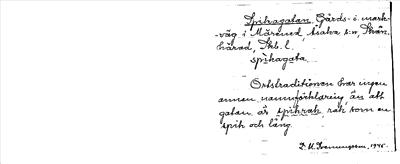 Spikagatan. Gårds- o. mark-
väg i Märsund, Asaka sn, Skån.
härad, Skb. l.
spikagata
Ortstraditionen har ingen
annan namnförklaring, än att
gatan är spikrak, rak som en
spik och lång.
1945.